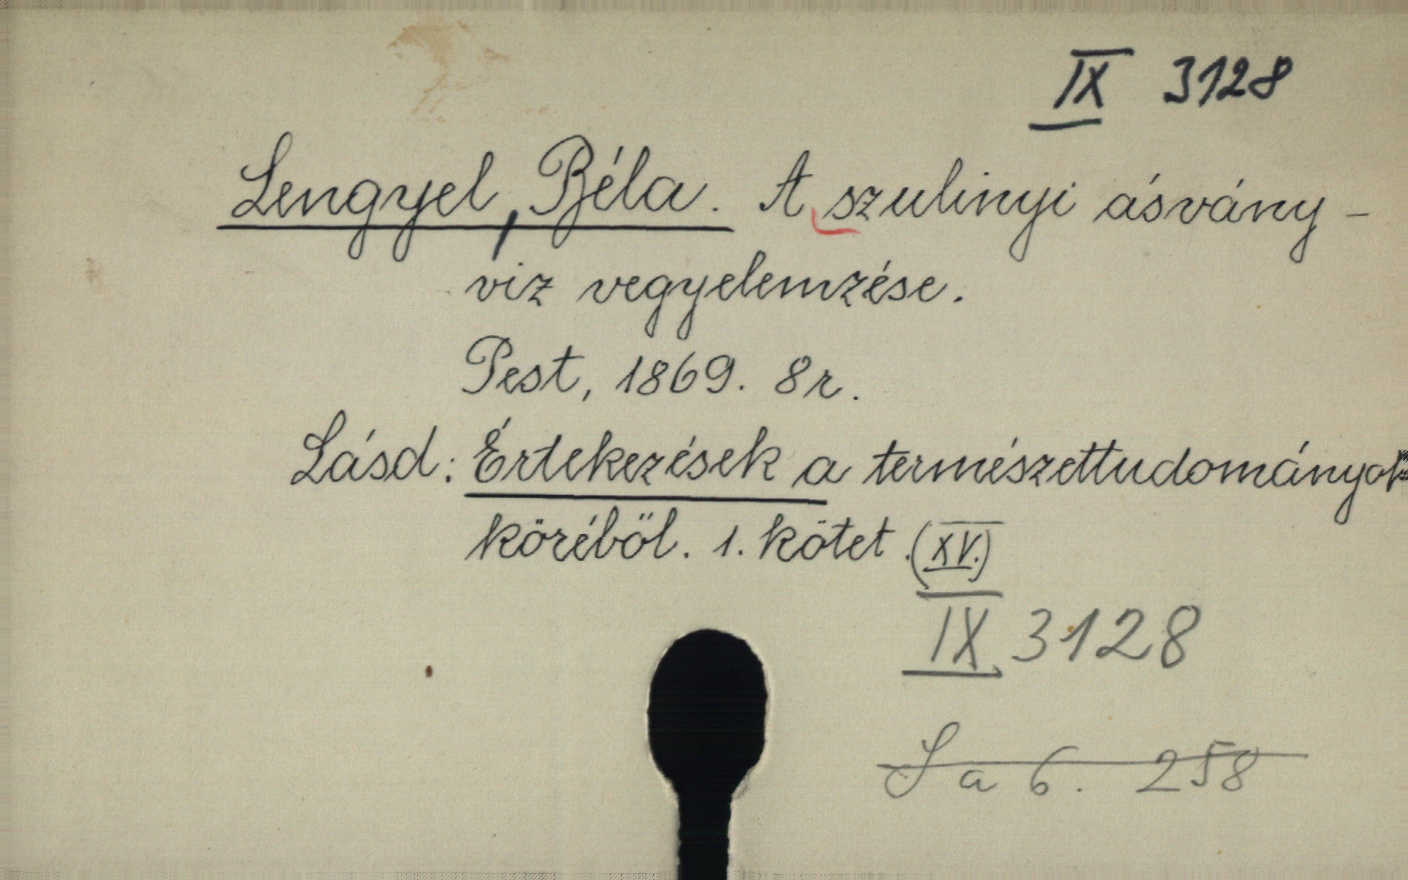 IX 3128
Lengyel, Béla. A szulinyi ásvány-
viz vegyelemzése.
Pest, 1869. 8r.
Lásd: Értekezések a természettudományok
köréböl. 1. kötet. (XV.)
IX 3128
S a 6. 258